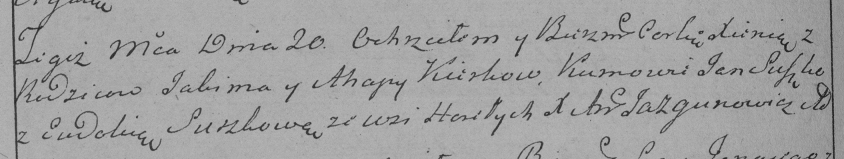 Tegiż Mca Dnia 20. Ochrzciłem y Bierzm Corkę Xienię z
Rodzicow Jakima y Ahapy Kuskow, Kumowie Jan Suszko
z Eudokią Suszkową ze wsi Horełych X An Jazgunowicz